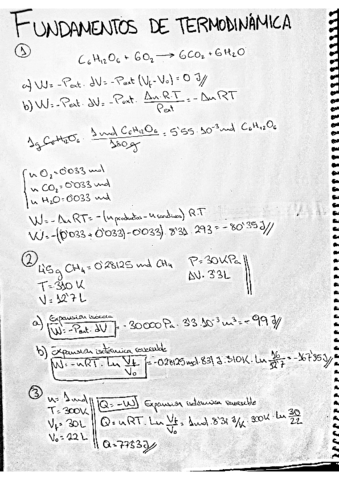 FUNDAMENTOS DE TERMODINÁMICA
①
C₆H₁₂O₆ + 6O₂ → 6CO₂ + 6H₂O
a) W = -Pext. dV = -Pext (Vf - V₀) = 0 J
b) W = -Pext. dV = -Pext. Δn R.T / Pext = -Δn RT
1g C₆H₁₂O₆ . 1 mol C₆H₁₂O₆ / 180 g = 5'55.10⁻³ mol C₆H₁₂O₆
n O₂ = 0'033 mol
n CO₂ = 0'033 mol
n H₂O = 0'033 mol
W = -Δn RT = -(n productos - n reactivos) R.T
W = -(0'033 + 0'033) - 0'033) 8'31. 293 = -80'35 J
②
4'5 g CH₄ = 0'28125 mol CH₄ P = 30 KPa
T = 310 K ΔV = 3'3 L
V = 12'7 L
a) Expansión
W = -Pext. dV = -30000 Pa. 3'3.10⁻³ m³ = -99 J
b) Expansión isotérmica reversible
W = -nRT. Ln Vf/V₀ = -0'28125 mol. 8'31 J. 310 K. Ln 16/12'7 = -167'35 J
③
n = 1 mol Q = -W Expansión isotérmica reversible
T = 300 K Q = nRT. Ln Vf/V₀ = 1 mol. 8'31 J/K. 300 K. Ln 30/22
Vf = 30 L
V₀ = 22 L Q = 773'3 J